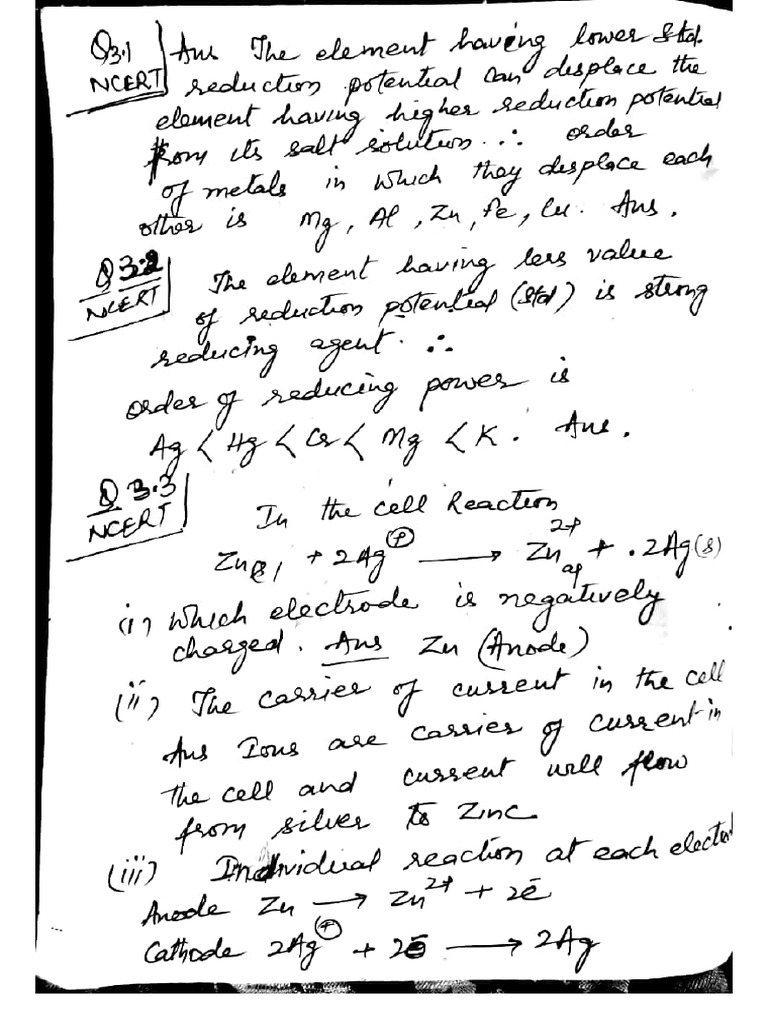 Q3.1 Ans The element having lower Std.
NCERT reduction potential can displace the
element having higher reduction potential
from its salt solution. ∴ order
of metals in which they displace each
other is Mg, Al, Zn, Fe, Cu. Ans.
Q3.2 The element having less value
NCERT of reduction potential (Std) is strong
reducing agent. ∴
order of reducing power is
Ag < Hg < Cr < Mg < K. Ans.
Q 3.3
NCERT In the cell Reaction
Zn(s) + 2Ag⊕ ⟶ Zn²⁺aq + .2Ag(s)
(i) Which electrode is negatively
charged. Ans Zn (Anode)
(ii) The carrier of current in the cell
Ans Ions are carrier of current in
the cell and current will flow
from silver to Zinc
(iii) Individual reaction at each electro
Anode Zn ⟶ Zn²⁺ + 2ē
Cathode 2Ag⊕ + 2ē ⟶ 2Ag